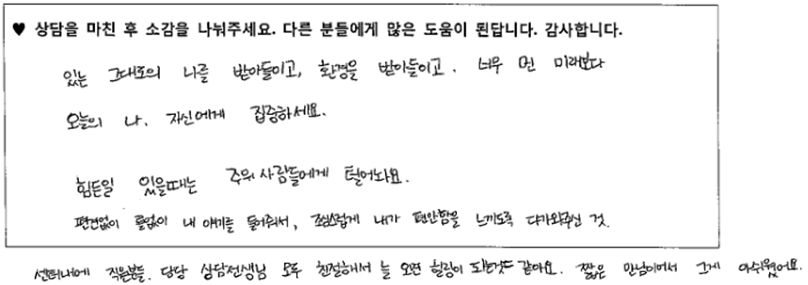 ♥ 상담을 마친 후 소감을 나눠주세요. 다른 분들에게 많은 도움이 된답니다. 감사합니다.
있는 그대로의 나를 받아들이고, 환경을 받아들이고. 너무 먼 미래보다
오늘의 나. 자신에게 집중하세요.
힘든일 있을때는 주위 사람들에게 털어놔요.
편견없이 틀없이 내 얘기를 들어줘서, 조심스럽게 내가 편안함을 느끼도록 다가와주신 것.
센터내에 직원분들. 담당 상담선생님 모두 친절해서 늘 오면 힐링이 되는것도 같아요. 짧은 만남이어서 그게 아쉬웠어요.